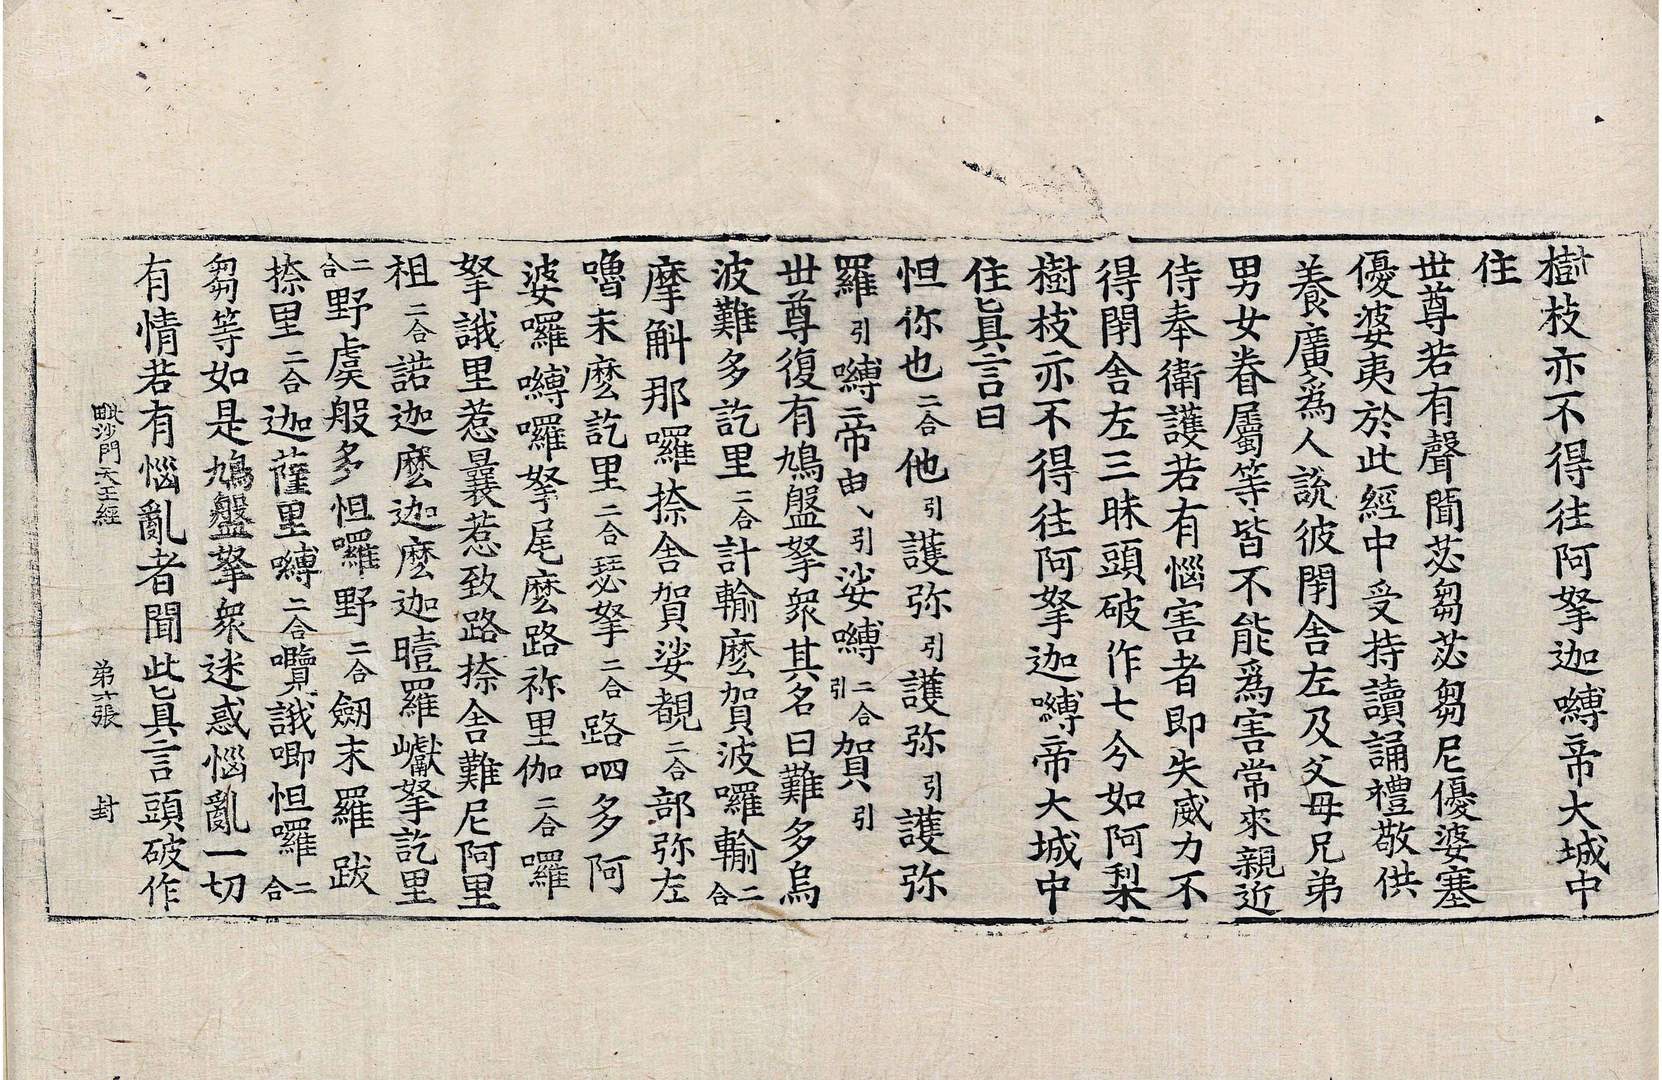 樹枝亦不得往阿拏迦嚩帝大城中
住
世尊若有聲聞苾芻苾芻尼優婆塞
優婆夷於此經中受持讀誦禮敬供
養廣爲人說彼閉舍左及父母兄弟
男女眷屬等皆不能爲害常來親近
侍奉衛護若有惱害者即失威力不
得閉舍左三昧頭破作七分如阿梨
樹枝亦不得往阿拏迦嚩帝大城中
住眞言曰
怛你也二合他引護弥引護弥引護弥
羅引嚩帝曳引娑嚩二合引賀引
世尊復有鳩盤拏衆其名曰難多烏
波難多訖里二合計輸麽賀波囉輸二合
摩斛那囉捺舍賀娑覩二合部弥左
嚕末麽訖里二合瑟拏二合路呬多阿
婆囉嚩囉拏尾麽路祢里伽二合囉
拏誐里惹曩惹致路捺舍難尼阿里
祖二合諾迦麽迦麽迦曀羅巘拏訖里
二合野虞般多怛囉野二合劒末羅跋
捺里二合迦薩里嚩二合囕誐唧怛囉二合
芻等如是鳩盤拏衆迷惑惱亂一切
有情若有惱亂者聞此眞言頭破作
毗沙門天王經　第六張　封